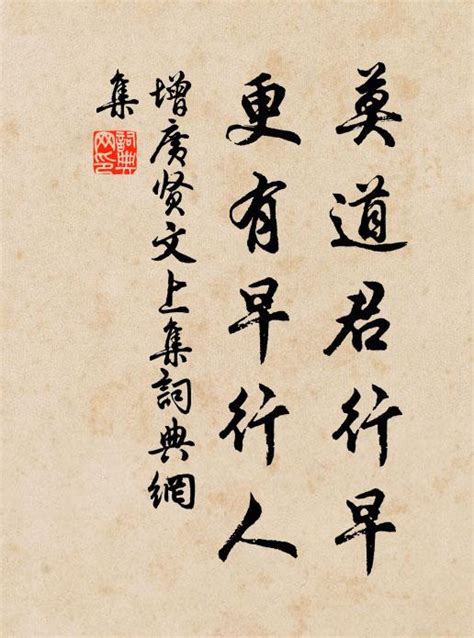 莫道君行早
更有早行人
增广贤文上集詞典網
集
詞典
网印